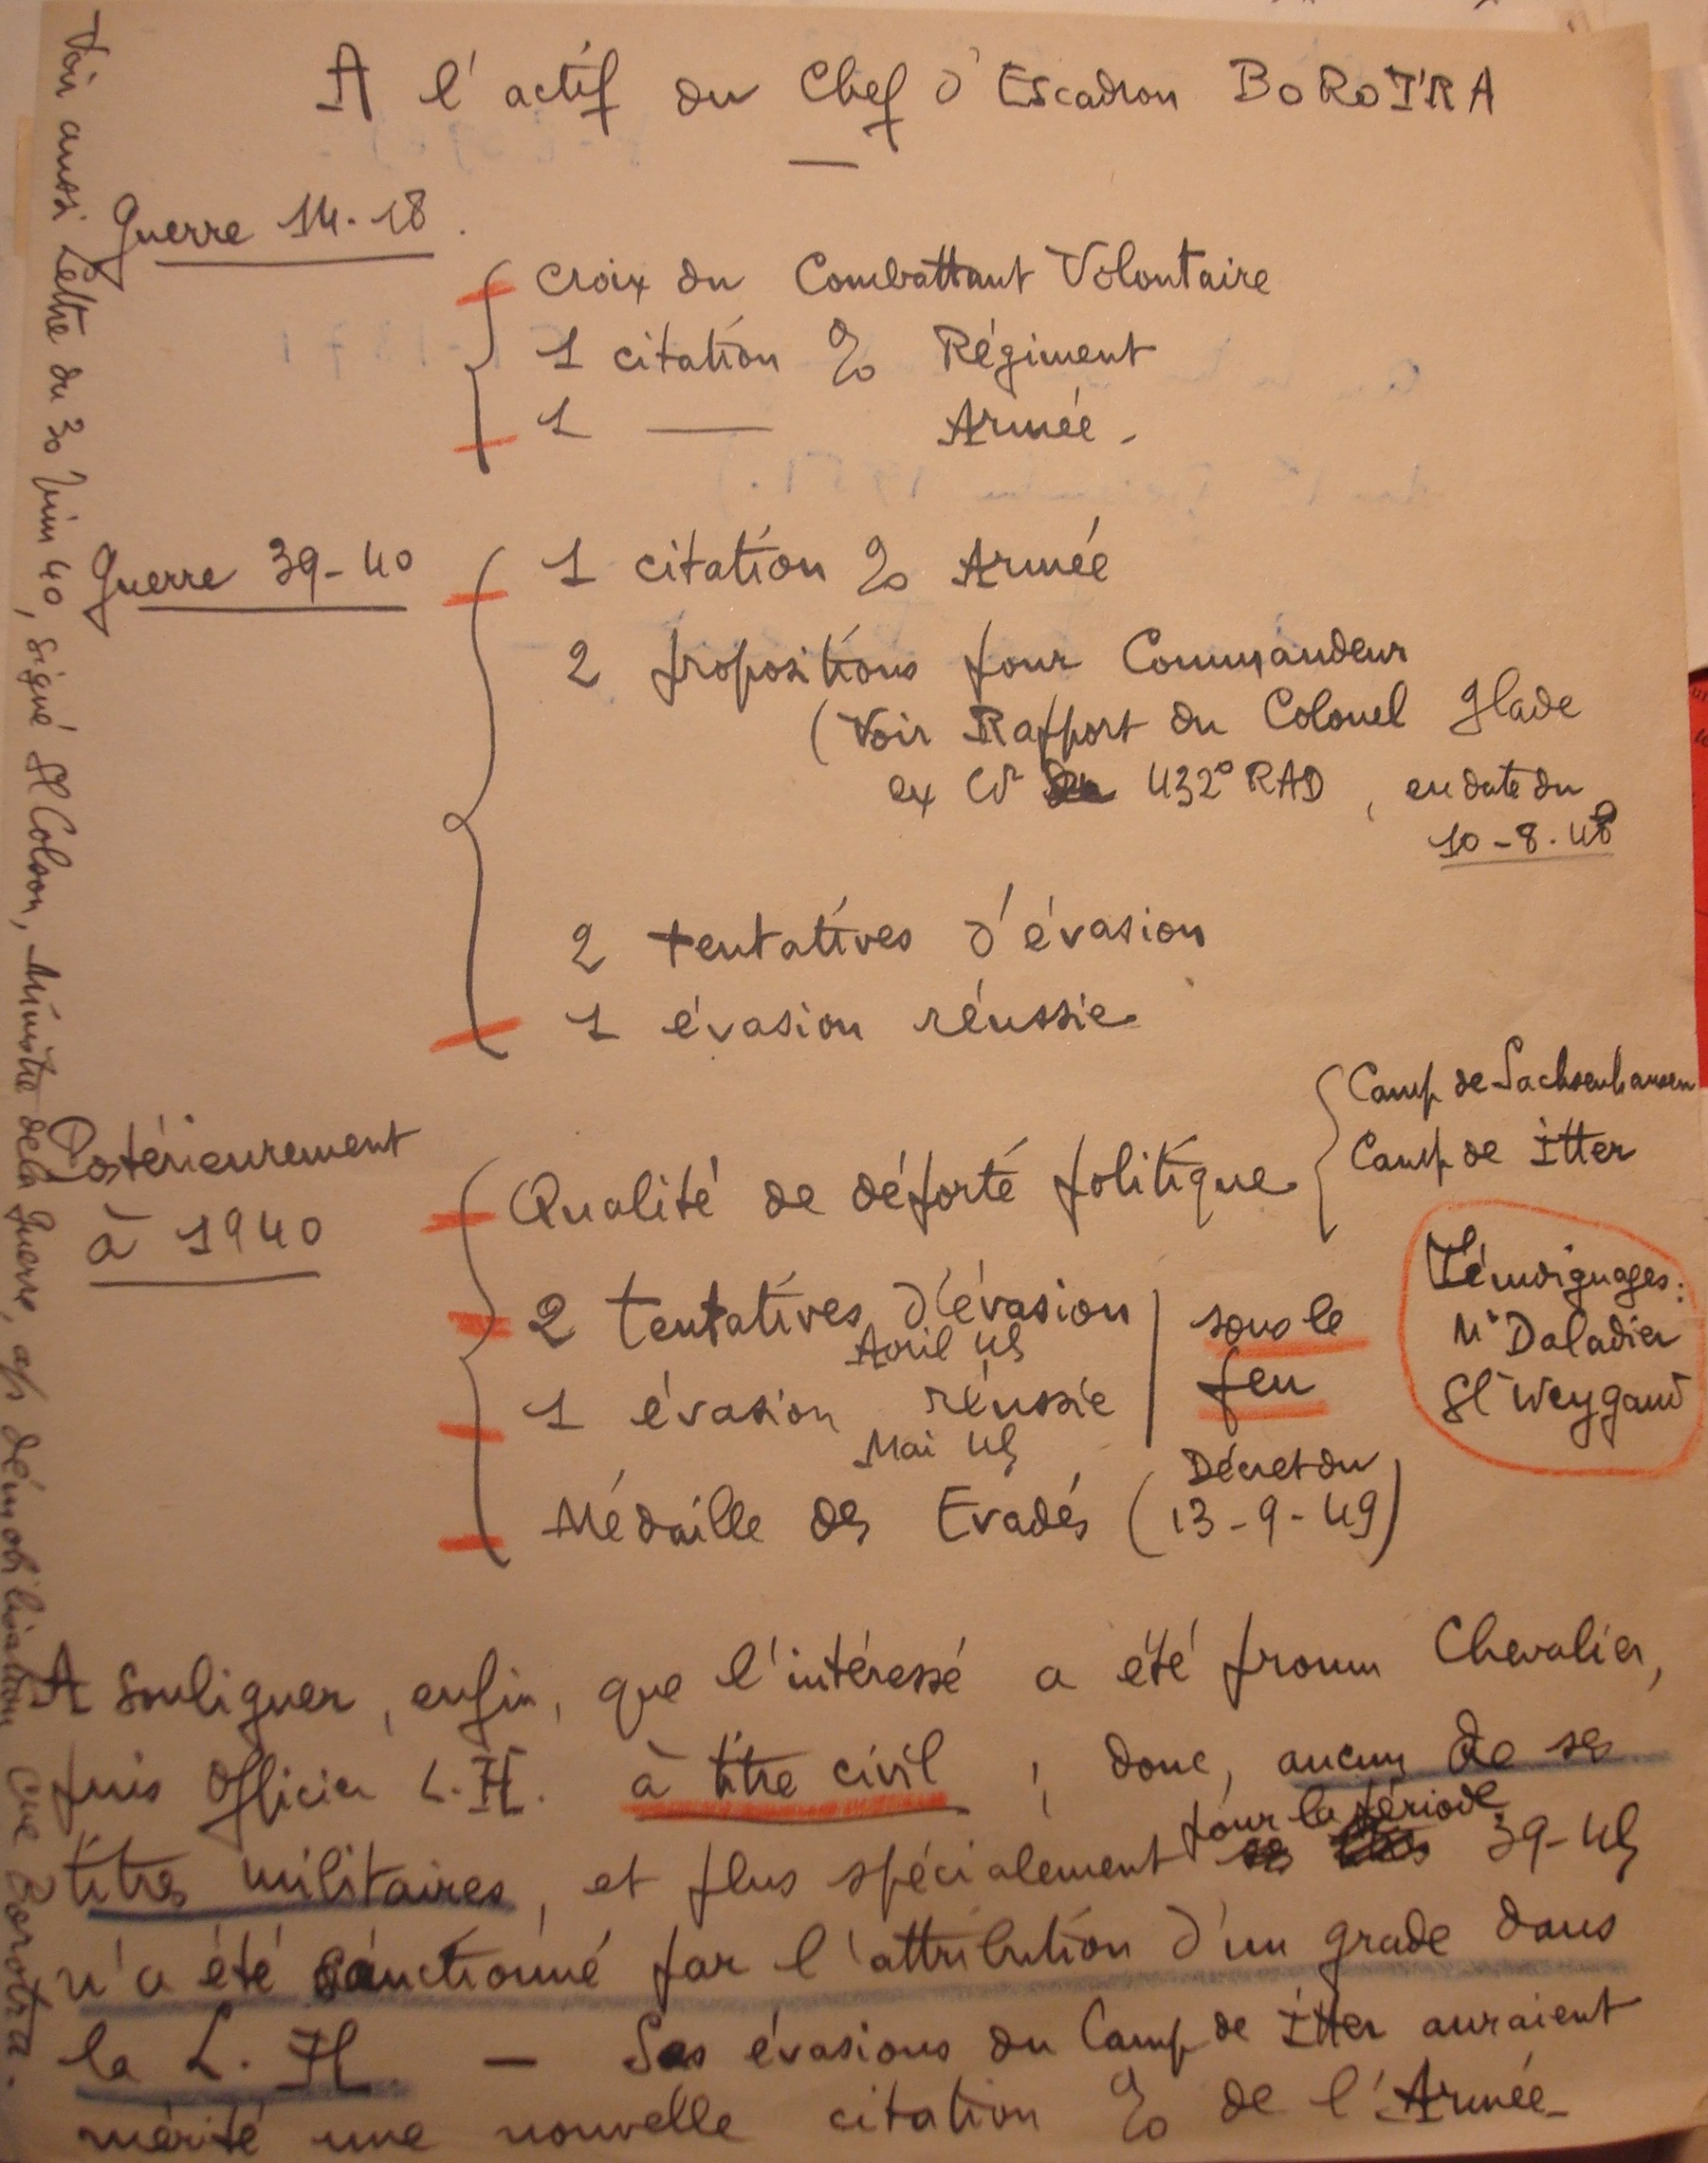 A l'actif du Chef d'Escadron BOROTRA
Guerre 14-18.
Croix du Combattant Volontaire
1 citation % Régiment
1 —— Armée.
Guerre 39-40
1 citation % Armée
2 propositions pour Commandeur
(Voir Rapport du Colonel Glade
ex Ct 432° RAD, en date du
10-8-48
2 tentatives d'évasion
1 évasion réussie
Postérieurement
à 1940
Qualité de déporté politique
Camp de Sachsenhausen
Camp de Itter
2 tentatives d'évasion
Avril 45
1 évasion réussie
Mai 45
sous le
feu
Témoignages:
Mr Daladier
Gl Weygand
Médaille des Evadés (Décret du
13-9-49)
A souligner, enfin, que l'intéressé a été promu Chevalier,
puis Officier L.H. à titre civil ; donc, aucun de ses
titres militaires, et plus spécialement pour la période 39-45
n'a été sanctionné par l'attribution d'un grade dans
la L.H. — Ses évasions du Camp de Itter auraient
mérité une nouvelle citation % de l'Armée-
Voir aussi Lettre du 30 Juin 40, signé Gl Colson, Ministre de la Guerre, ap démobilisation que Borotra.